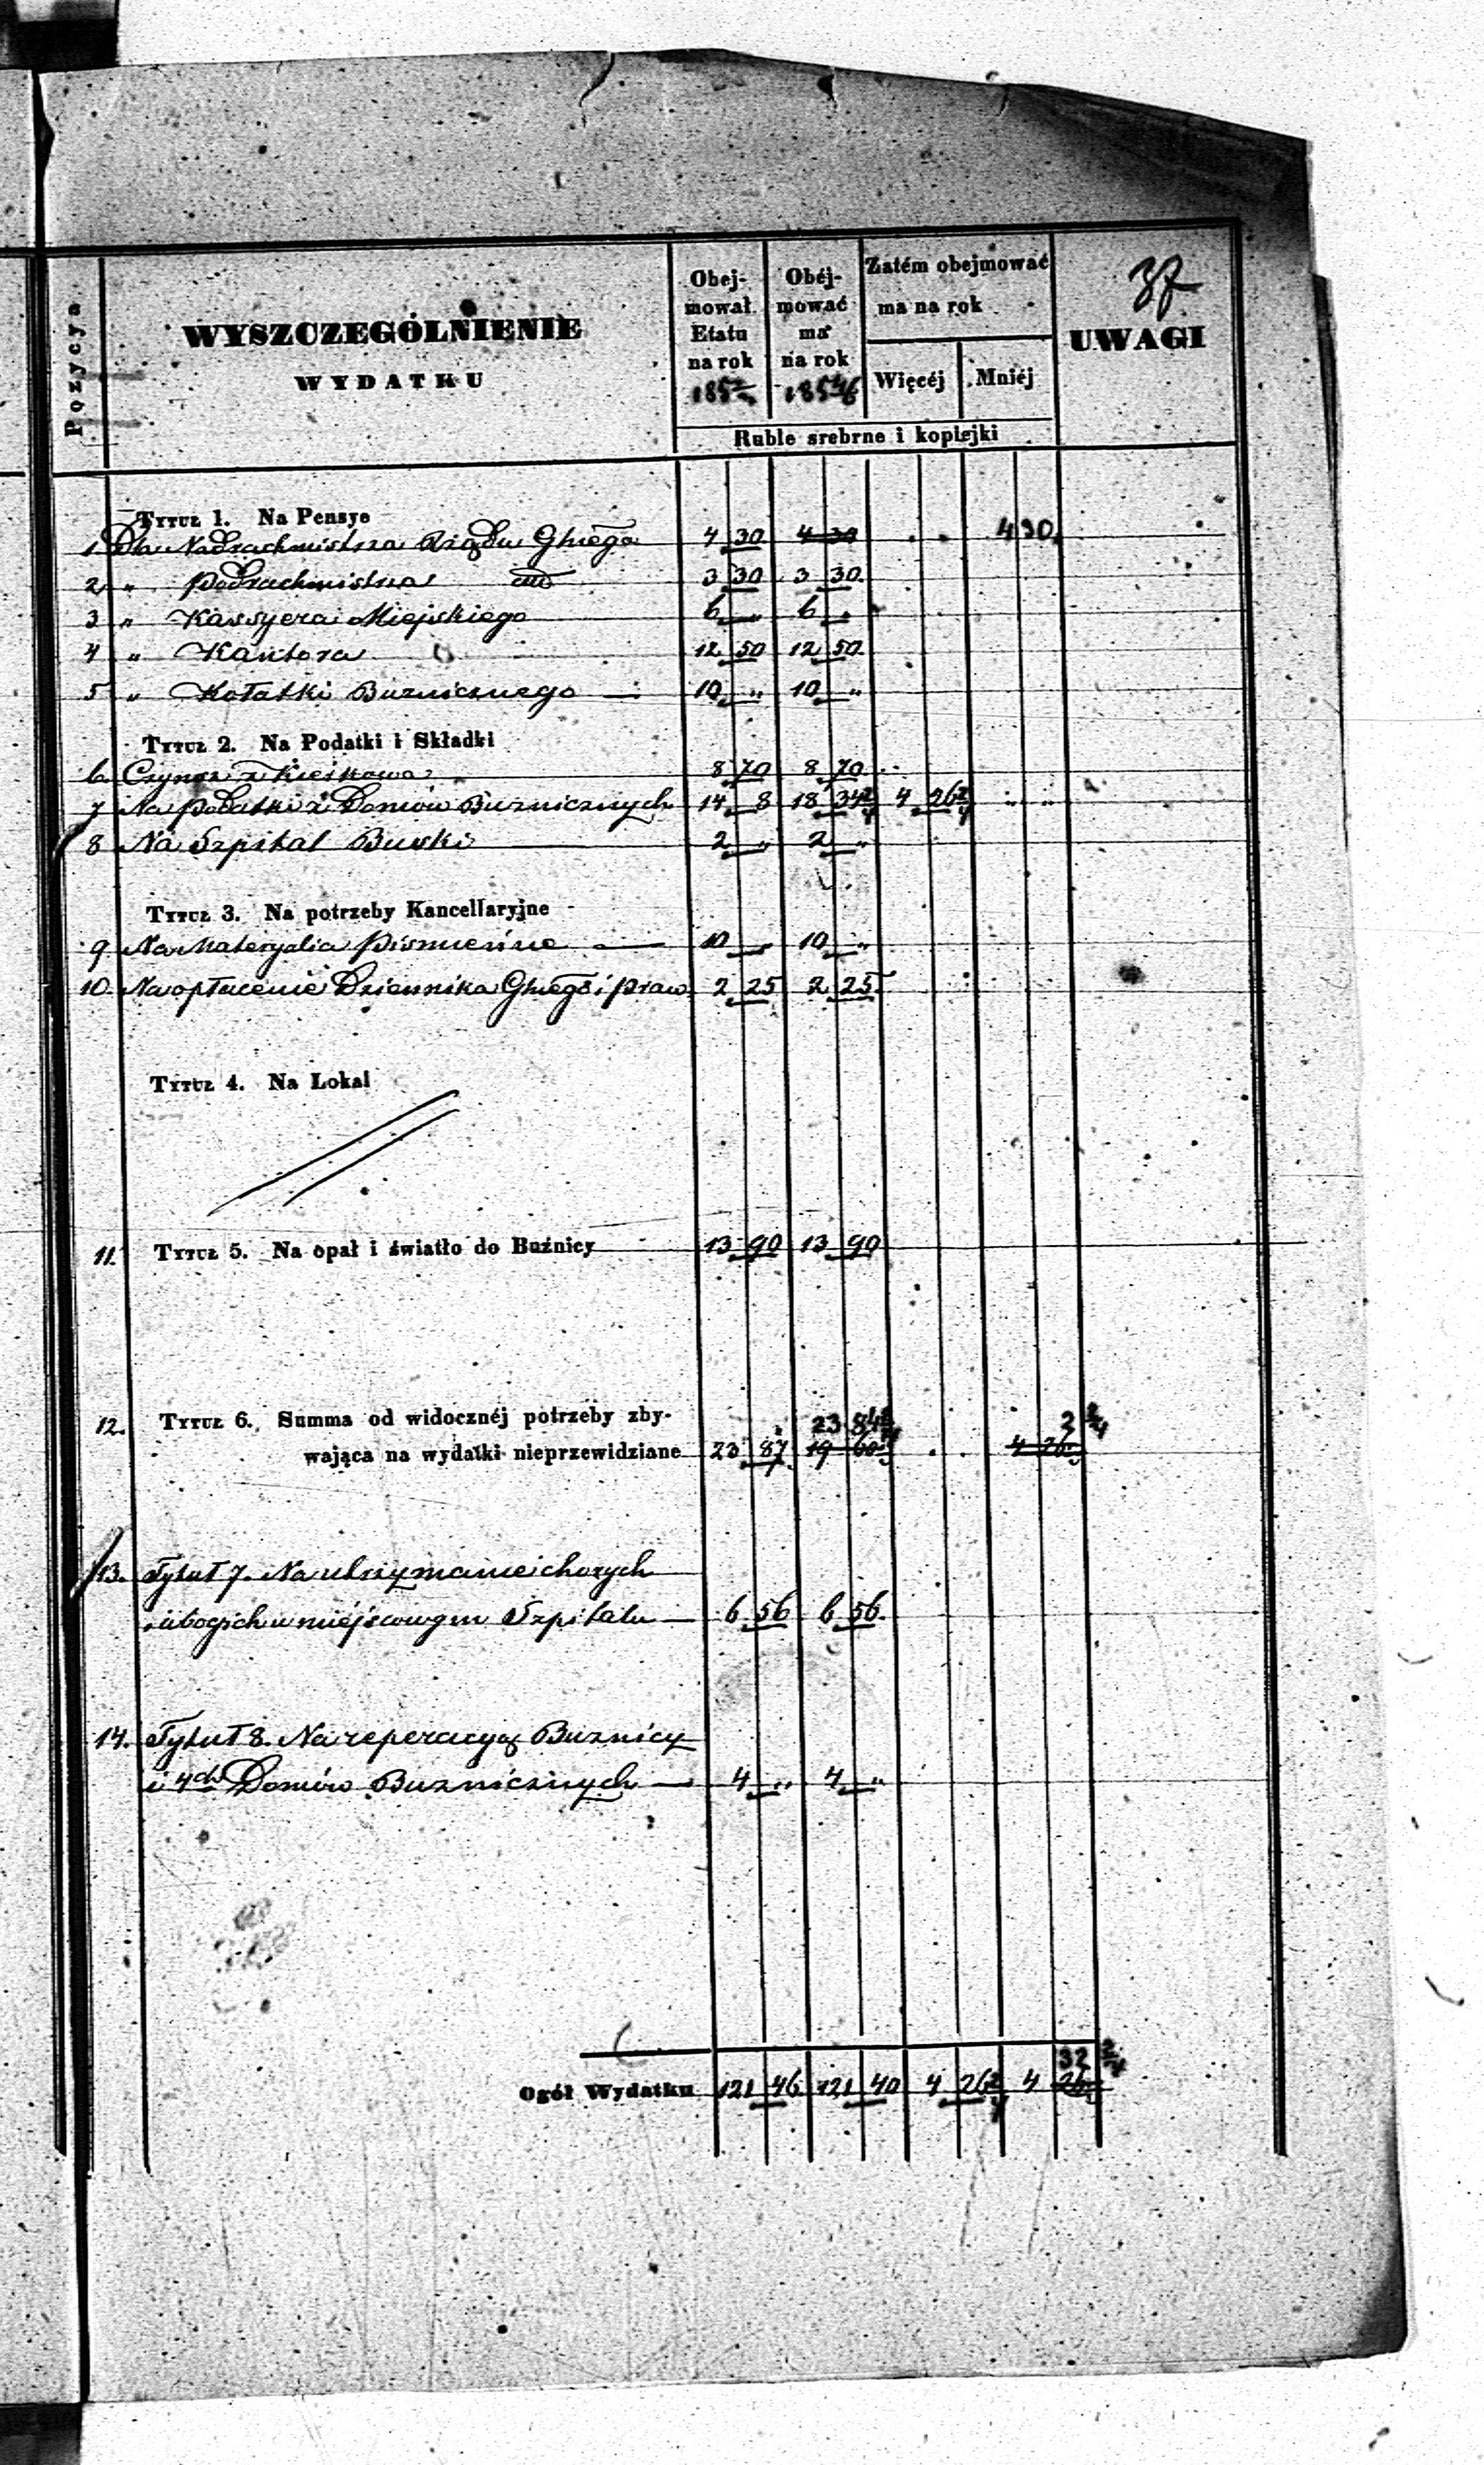 37
Pozycya
WYSZCZEGÓLNIENIE
WYDATKU
Obej-
mował
Etatu
na rok
Obéj-
mować
ma
na rok
Zatém obejmować
ma na rok
Więcéj Mniéj
UWAGI
Ruble srebrne i kopiejki
Tytuł 1. Na Pensye
1 Dla Nadrachmistrza Rządu Ghiego 4 30 4 30 4 30
2 " Podrachmistrza 3 30 3 30
3 " Kassyera Miejskiego 6 " 6 "
4 " Kantora 12 50 12 50
5 " Kołatki Buznicznego 10 " 10 "
Tytuł 2. Na Podatki i Składki
6 Czynsz z 8 70 8 70
7 Na podatki z Domów Buznicznych 14 8 18 34 2/4 4 26 2/4 " "
8 Na Szpital Buski 2 " 2 "
Tytuł 3. Na potrzeby Kancellaryjne
9 Na Materyalia Piśmienne 10 " 10 "
10. Na opłacenie Dziennika Ghiego i praw 2 25 2 25
Tytuł 4. Na Lokal
11. Tytuł 5. Na opał i światło do Buźnicy 13 90 13 90
12. Tytuł 6. Summa od widocznéj potrzeby zby-
23 84 2/4 2 2/4
wająca na wydatki nieprzewidziane 23 87 19 60 4 26
13. Tytuł 7. Na utrzymanie chorych
ubogich w miejscowym Szpitalu 6 56 6 56
14. Tytuł 8. Na reperacyą Buznicy
i 4ch Domów Buznicznych 4 " 4 "
32 2/4
Ogół Wydatku 121 46 121 40 4 26 2/4 4 26